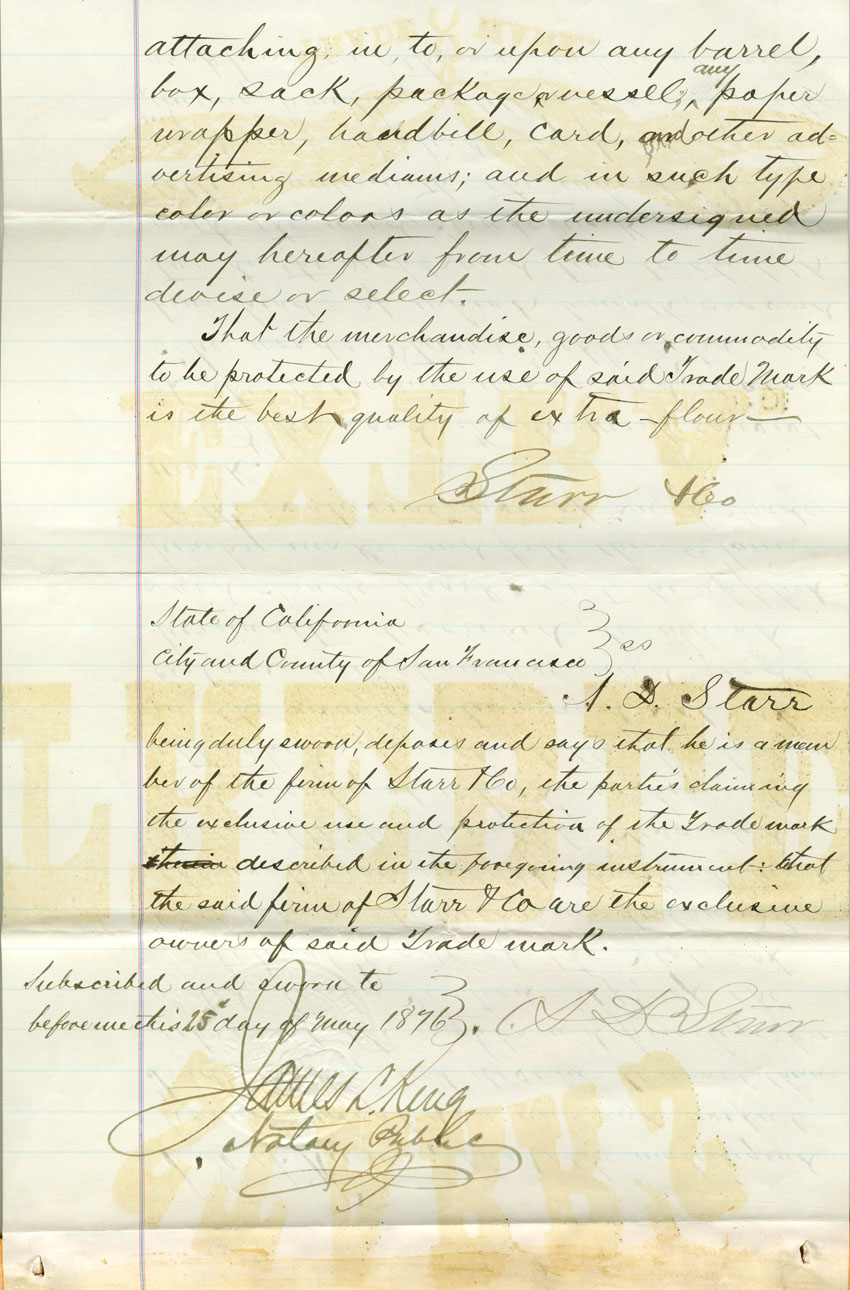 attaching, in, to, or upon any barrel,
box, sack, package or vessel, any paper
wrapper, handbill, card, and other ad=
vertising mediums; and in such type
color or colors as the undersigned
may hereafter from time to time
devise or select.
That the merchandise, goods or commodity
to be protected by the use of said Trade Mark
is the best quality of extra flour
Starr & Co
State of California
City and County of San Francisco } ss
A. D. Starr
being duly sworn, deposes and says that he is a mem
ber of the firm of Starr & Co, the parties claiming
the exclusive use and protection of the Trade mark
described in the foregoing instrument: that
the said firm of Starr & Co are the exclusive
owners of said Trade mark.
Subscribed and sworn to
before me this 25 day of May 1876 }. A D Starr
James L. King
Notary Public
EXTRA
STARR'S